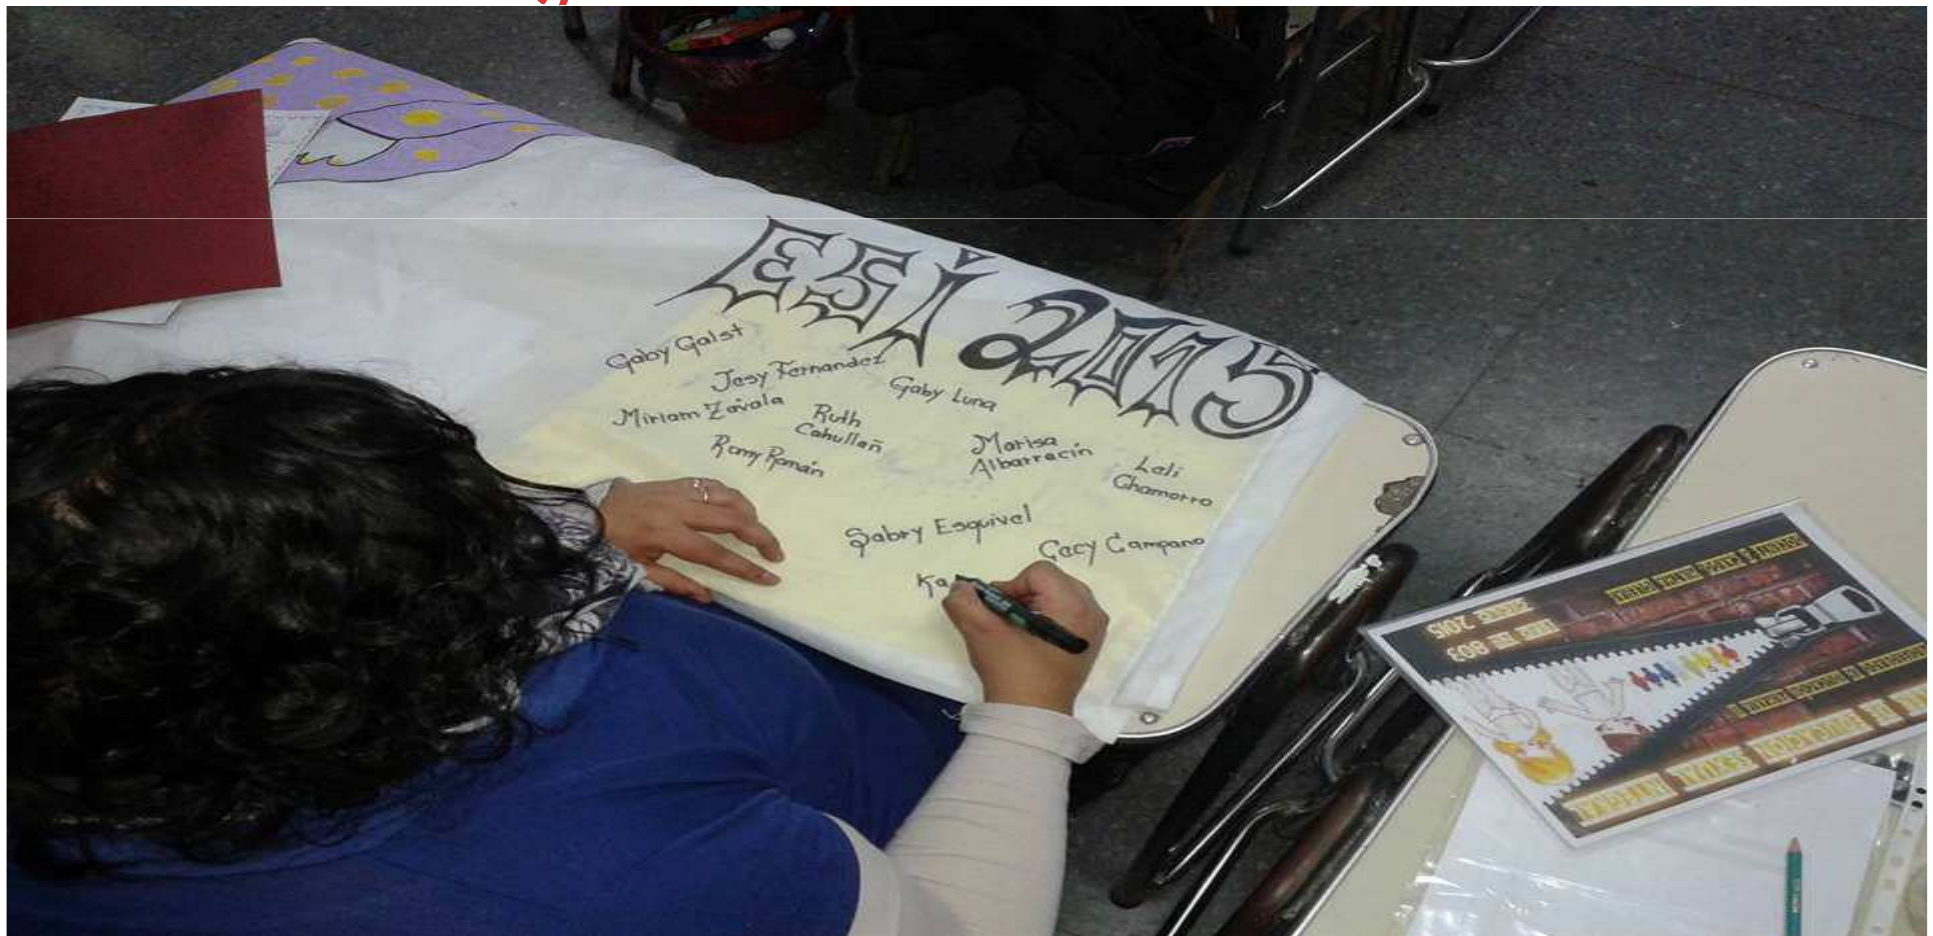 ESi 2015
Gaby Galst
Jesy Fernandez
Gaby Luna
Miriam Zavala
Ruth
Cahullañ
Romy Román
Marisa
Albarracin
Leli
Chamorro
Sabry Esquivel
Cecy Campano
Ka
SEXUAL INTEGRAL
803
2015